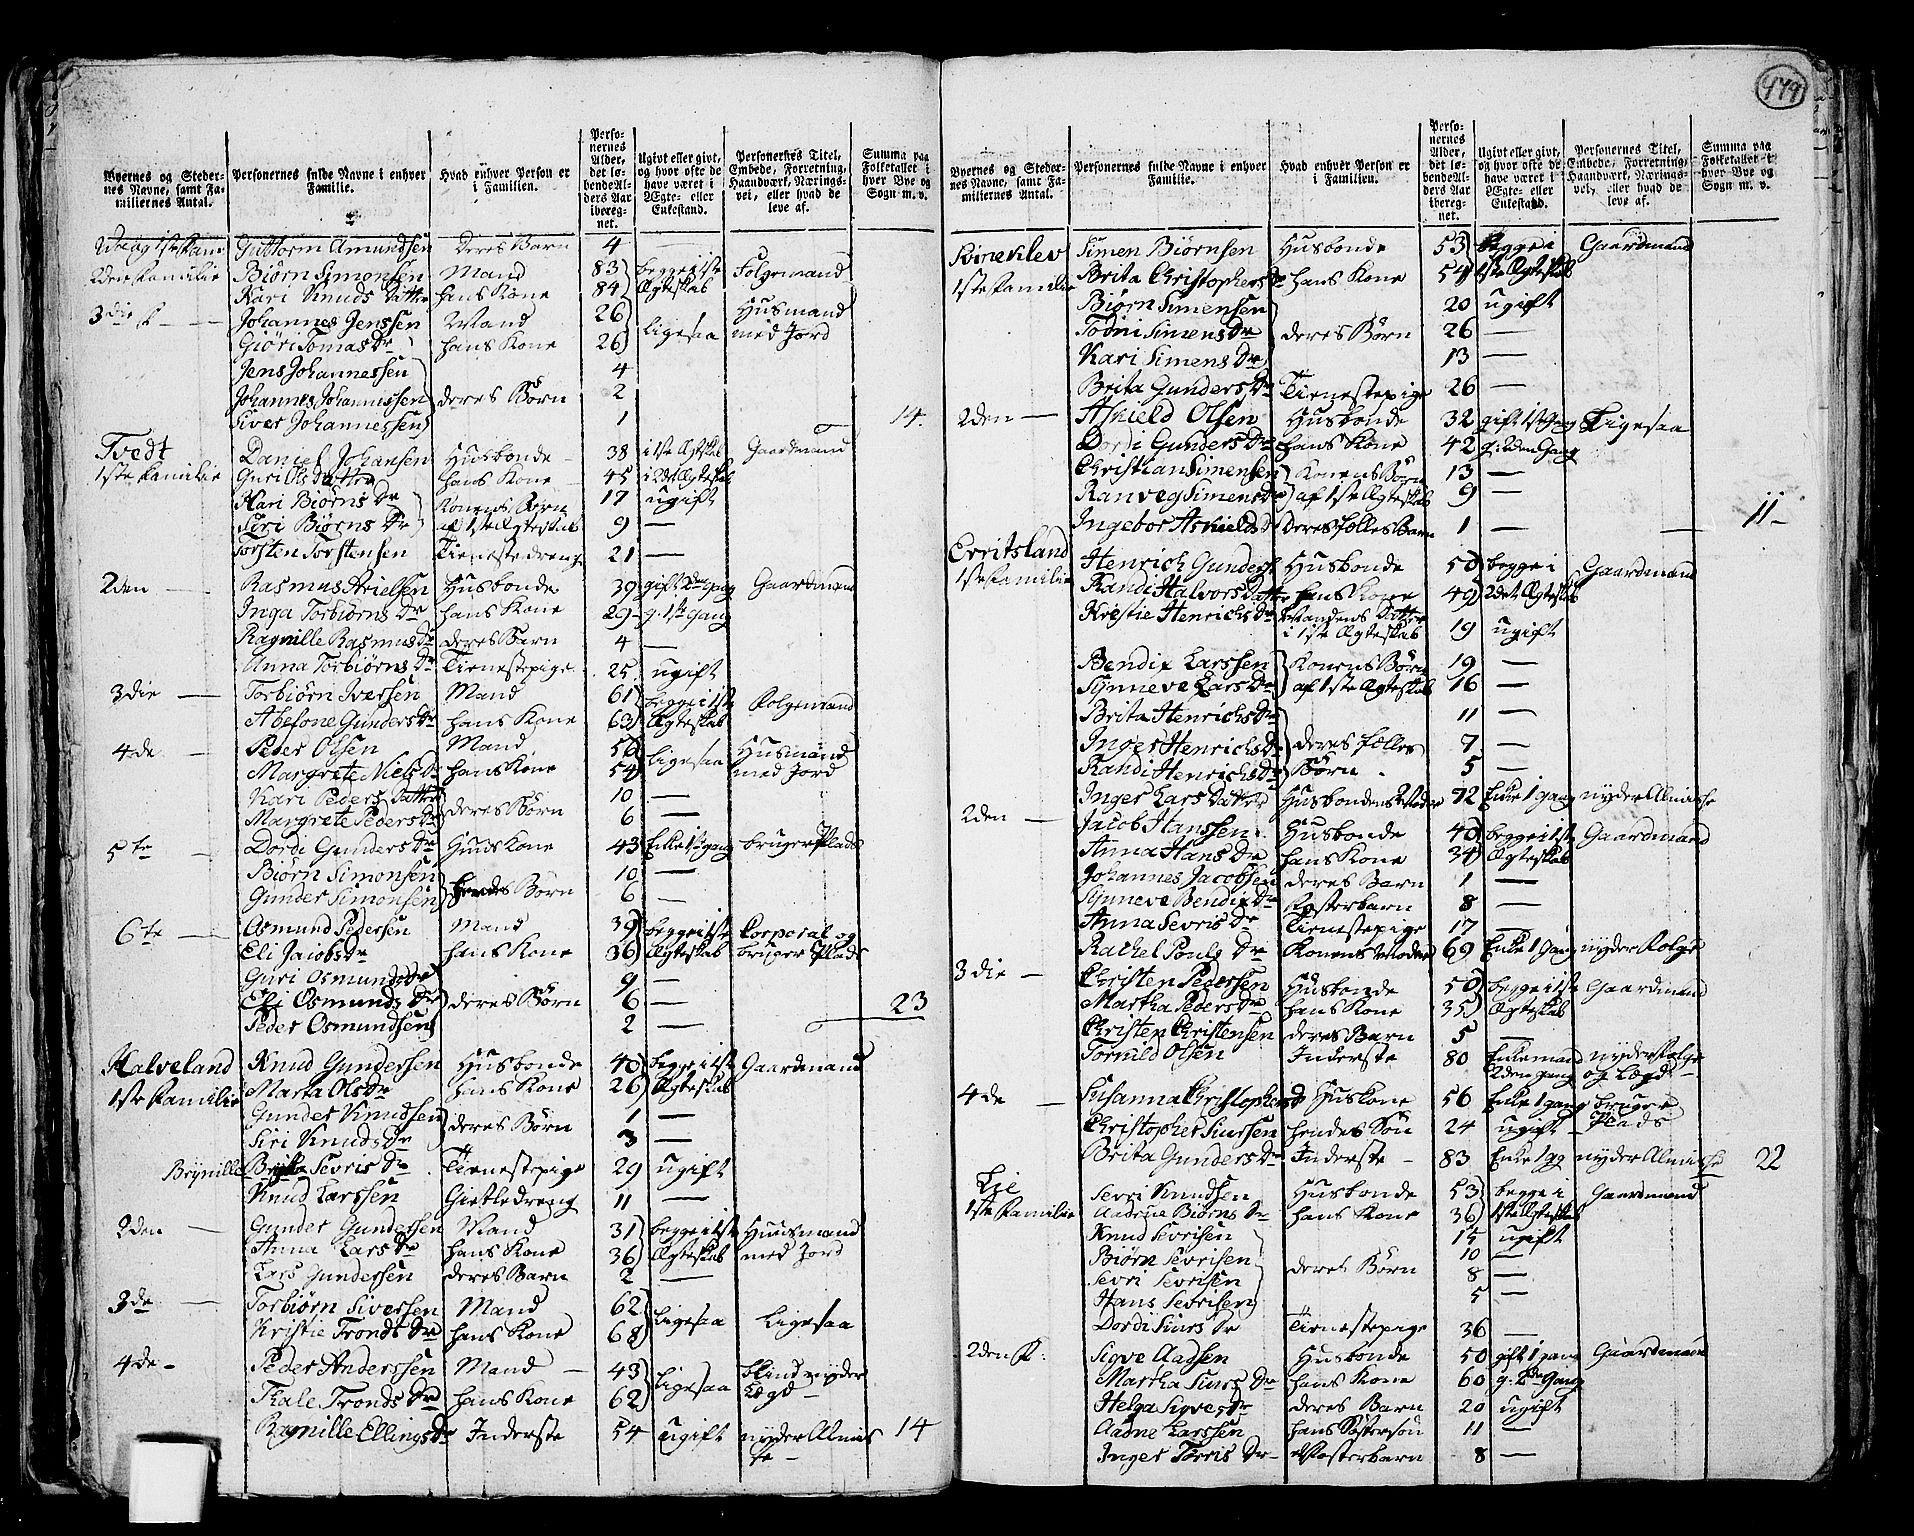 479
Byernes og Stedernes Navne, samt Familiernes Antal.
Personernes fulde Navne i enhver Familie.
Hvad enhver Person er i Familien.
Personernes Alder, det løbende Alders Aar iberegnet.
Ugivt eller givt, og hvor ofte de have været i Ægte- eller Enkestand.
Personernes Titel, Embede, Forretning, Haandværk, Næringsvei, eller hvad de leve af.
Summa paa Folketallet i hver Bye og Sogn m. v.
1ste Fam: Guttorm Amundsen deres Barn 4 —
2den Familie Biørn Simonsen Mand 83 begge i 1ste Folgemand
Kari Knuds Datter hans Kone 84 Ægteskab
3die F — Johannes Jenssen Mand 26 Husmand
Giøri Tomas Dr hans Kone 26 ligesaa med Jord
Jens Johannessen 4
Johannes Johannessen deres Børn 2
Siver Johannessen 1 14.
Tvedt Daniel Johansen Husbonde 38 i 1ste Ægteskab Gaardmand
1ste Familie Guri Ols Datter hans Kone 45 i 2det Ægteskab
Kari Biørns Dr Konens Børn 17 ugift
Siri Biørns Dr af 1ste Ægteskab 9 —
Torsten Torstensen Tienestedreng 21 —
2den — Rasmus Arielsen Husbonde 39 gift 2den gang Gaardmand
Inga Torbiørns Dr hans Kone 29 g. 1ste Gang
Ragnille Rasmus Dr deres Barn 4 —
Anna Torbiørns Dr Tienestepige 25 ugift
3die — Torbiørn Iversen Mand 61 begge i 1ste Folgemand
Abelone Gunders Dr hans Kone 63 Ægteskab
4de — Peder Olsen Mand 56 ligesaa Husmand
Margrete Niels Dr hans Kone 54 med Jord
Kari Peders Datter 10 —
Margrete Peders Dr deres Børn 6 —
5te — Dordi Gunders Dr Huus Kone 43 Enke 1ste gang bruger Plads
Biørn Simonsen 10 —
Gunder Simonsen hendes Børn 6 —
6te — Osmund Pedersen Mand 39 begge i 1ste Corporal og
Eli Jacobs Dr hans Kone 36 Ægteskab bruger Plads
Guri Osmunds Dr 9 —
Eli Osmunds Dr deres Børn 6 — 23
Peder Osmundsen 2 —
Halveland Knud Gundersen Husbonde 40 begge i 1ste Gaardmand
1ste Familie Marta Ols Dr hans Kone 26 Ægteskab
Gunder Knudsen 1 —
Siri Knuds Dr deres Børn 3 —
Brynille Sevris Dr Tienestepige 29 ugift
Knud Larssen Gietledreng 11 —
2den — Gunder Gundersen Mand 31 begge i 1ste Huusmand
Anna Lars Dr hans Kone 36 Ægteskab med Jord
Lars Gundersen deres Barn 2 —
3de — Torbiørn Siversen Mand 62 ligesaa Ligesaa
Kristie Tronds Dr hans Kone 68
4de - Peder Anderssen Mand — 43 ligesaa blind nyder
Tkale Tronds Dr hans Kone 62 Lægd —
Ragnille Ellings Dr Inderste 54 ugift nyder Almis 14
se —
Byernes og Stedernes Navne, samt Familiernes Antal.
Personernes fulde Navne i enhver Familie.
Hvad enhver Person er i Familien.
Personernes Alder, det løbende Alders Aar iberegnet.
Ugivt eller givt, og hvor ofte de have været i Ægte- eller Enkestand.
Personernes Titel, Embede, Forretning, Haandværk, Næringsvei, eller hvad de leve af.
Summa paa Folketallet i hver Bye og Sogn m. v.
Simen Biørnsen Husbonde 53 begge i Gaardmand
1ste Familie Brita Christophers Dr hans Kone 54 1ste Ægteskab
Biørn Simensen 20 ugift
Todni Simens Dr deres Børn 26 —
Kari Simens Dr 13 —
Brita Gunders Dr Tienestepige 26 —
2den — Askield Olsen Husbonde 32 gift 1ste Gang Ligesaa
Dordi Gunders Dr hans Kone 42 g. 2den Gang
Christian Simensen Konens Børn 13 —
Ranveg Simens Dr af 1ste Ægteskab 9 —
Ingebor Askields D deres fælles Barn 1 — 11 -
Erritsland Henrich Gunders Husbonde 50 begge i Gaardmand
1ste Familie Randi Halvors Datter hans Kone 49 2det Ægteskab
Krestie Henrichs Dr Mandens Datter 19 ugift
i 1ste Ægteskab
Bendix Larssen Konens Børn 19 —
Synneve Lars Dr af 1ste Ægteskab 16 —
Brita Henrichs Dr 11 —
Inger Henrichs Dr deres fælles 7 —
Randi Henrichs Dr Børn. 5 —
Inger Lars Datter Husbondens Moder 72 Enke 1 gang nyder Almisse
2den — Jacob Hanssen Husbonde 40 begge i 1ste Gaardmand
Anna Hans Dr hans Kone 34 Ægteskab
Johannes Jacobsen deres Barn 1 —
Synneve Bendix Dr Fosterbarn 8 —
Anna Sevris Dr Tienestepige 17 —
Rachel Pouls Dr Konens Moder 69 Enke 1 Gang nyder Folge
3die — Christen Pedersen Husbonde 50 begge i 1ste Gaardmand
Martha Peders Dr hans Kone 35 Ægteskab
Christen Christensen deres Barn 5 —
Tormild Olsen Inderste 80 Enkemand nyder Folge
2den gang og Lægd —
4de — Susanna Christophers D Huskone 56 Enke 1 gang bruger
Christopher Siurssen hendes Søn 24 ugift — Plads
Brita Gunders Dr Inderste — 83 Enke 1 gg nyder Almisse 22
Lie Sevri Knudsen Husbonde 53 begge i Gaardmand
1ste Familie Aadne Biørns Dr hans Kone 36 1ste Ægteskab
Knud Sevrisen 15 ugift
Biørn Sevrisen 10 —
Sevri Sevrisen deres Børn 8 —
Hans Sevrisen 5 —
Dordi Siurs Dr Tienestepige 36 —
2den F: Sigve Aadsen Husbonde 50 gift 1 gang Gaardmand
Martha Siurs Dr hans Kone 60 g. 2de Gang
Helga Sigves Dr deres Barn 20 ugift
Aadne Larssen hans Søstersøn 11 —
Inger Torris Dr — Fosterbarn 8 —